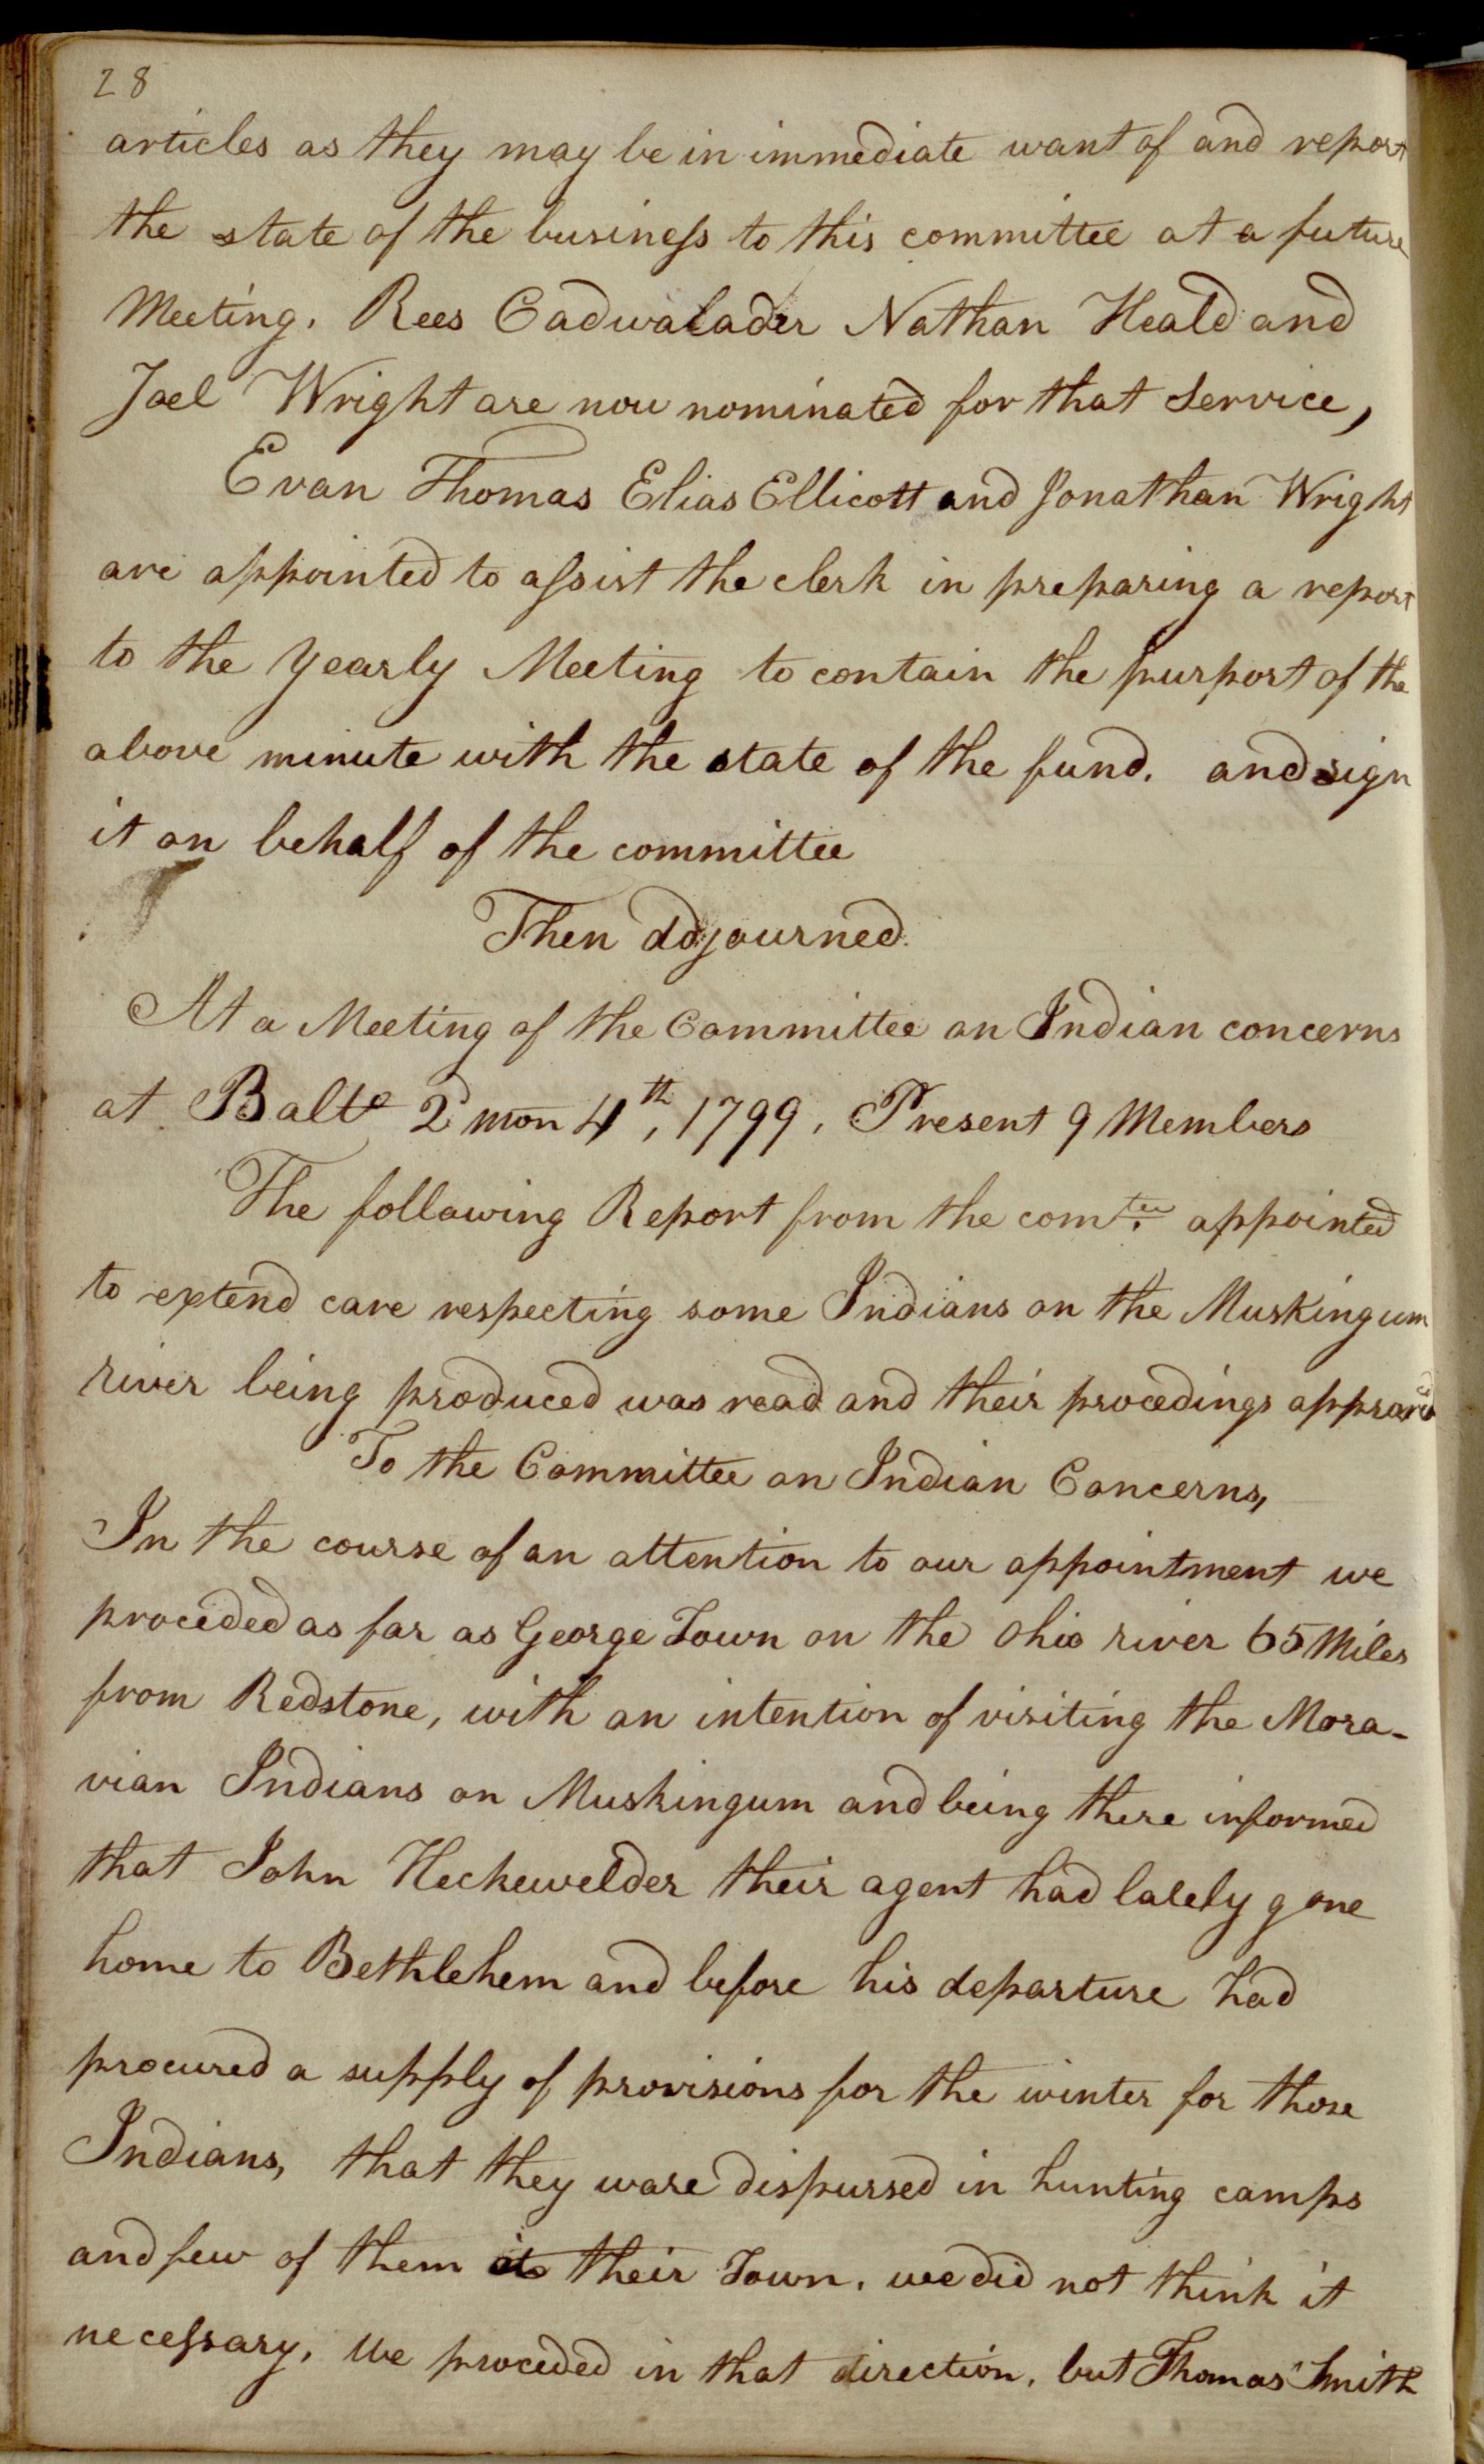 28
articles as they may be in immediate want of and report
the state of the business to this committee at a future
Meeting. Rees Cadwalader Nathan Heald and
Joel Wright are now nominated for that Service,
Evan Thomas Elias Ellicott and Jonathan Wright
are appointed to assist the clerk in preparing a report
to the Yearly Meeting to contain the purport of the
above minute with the state of the fund. and sign
it on behalf of the committee
Then adjourned.
At a Meeting of the Committee on Indian concerns
at Balto 2d mon 4th, 1799, Present 9 Members
The following Report from the comtee. appointed
to extend care respecting some Indians on the Muskingum
river being produced was read and their procedings approv'd
To the Committee on Indian Concerns,
In the course of an attention to our appointment we
proceded as far as George Town on the Ohio river 65 Miles
from Redstone, with an intention of visiting the Mora-
vian Indians on Muskingum and being there informed
that John Heckewelder their agent had lately gone
home to Bethlehem and before his departure had
procured a supply of provisions for the winter for those
Indians, that they ware dispursed in hunting camps
and few of them at their Town. we did not think it
necessary, We proceded in that direction, but Thomas Smith